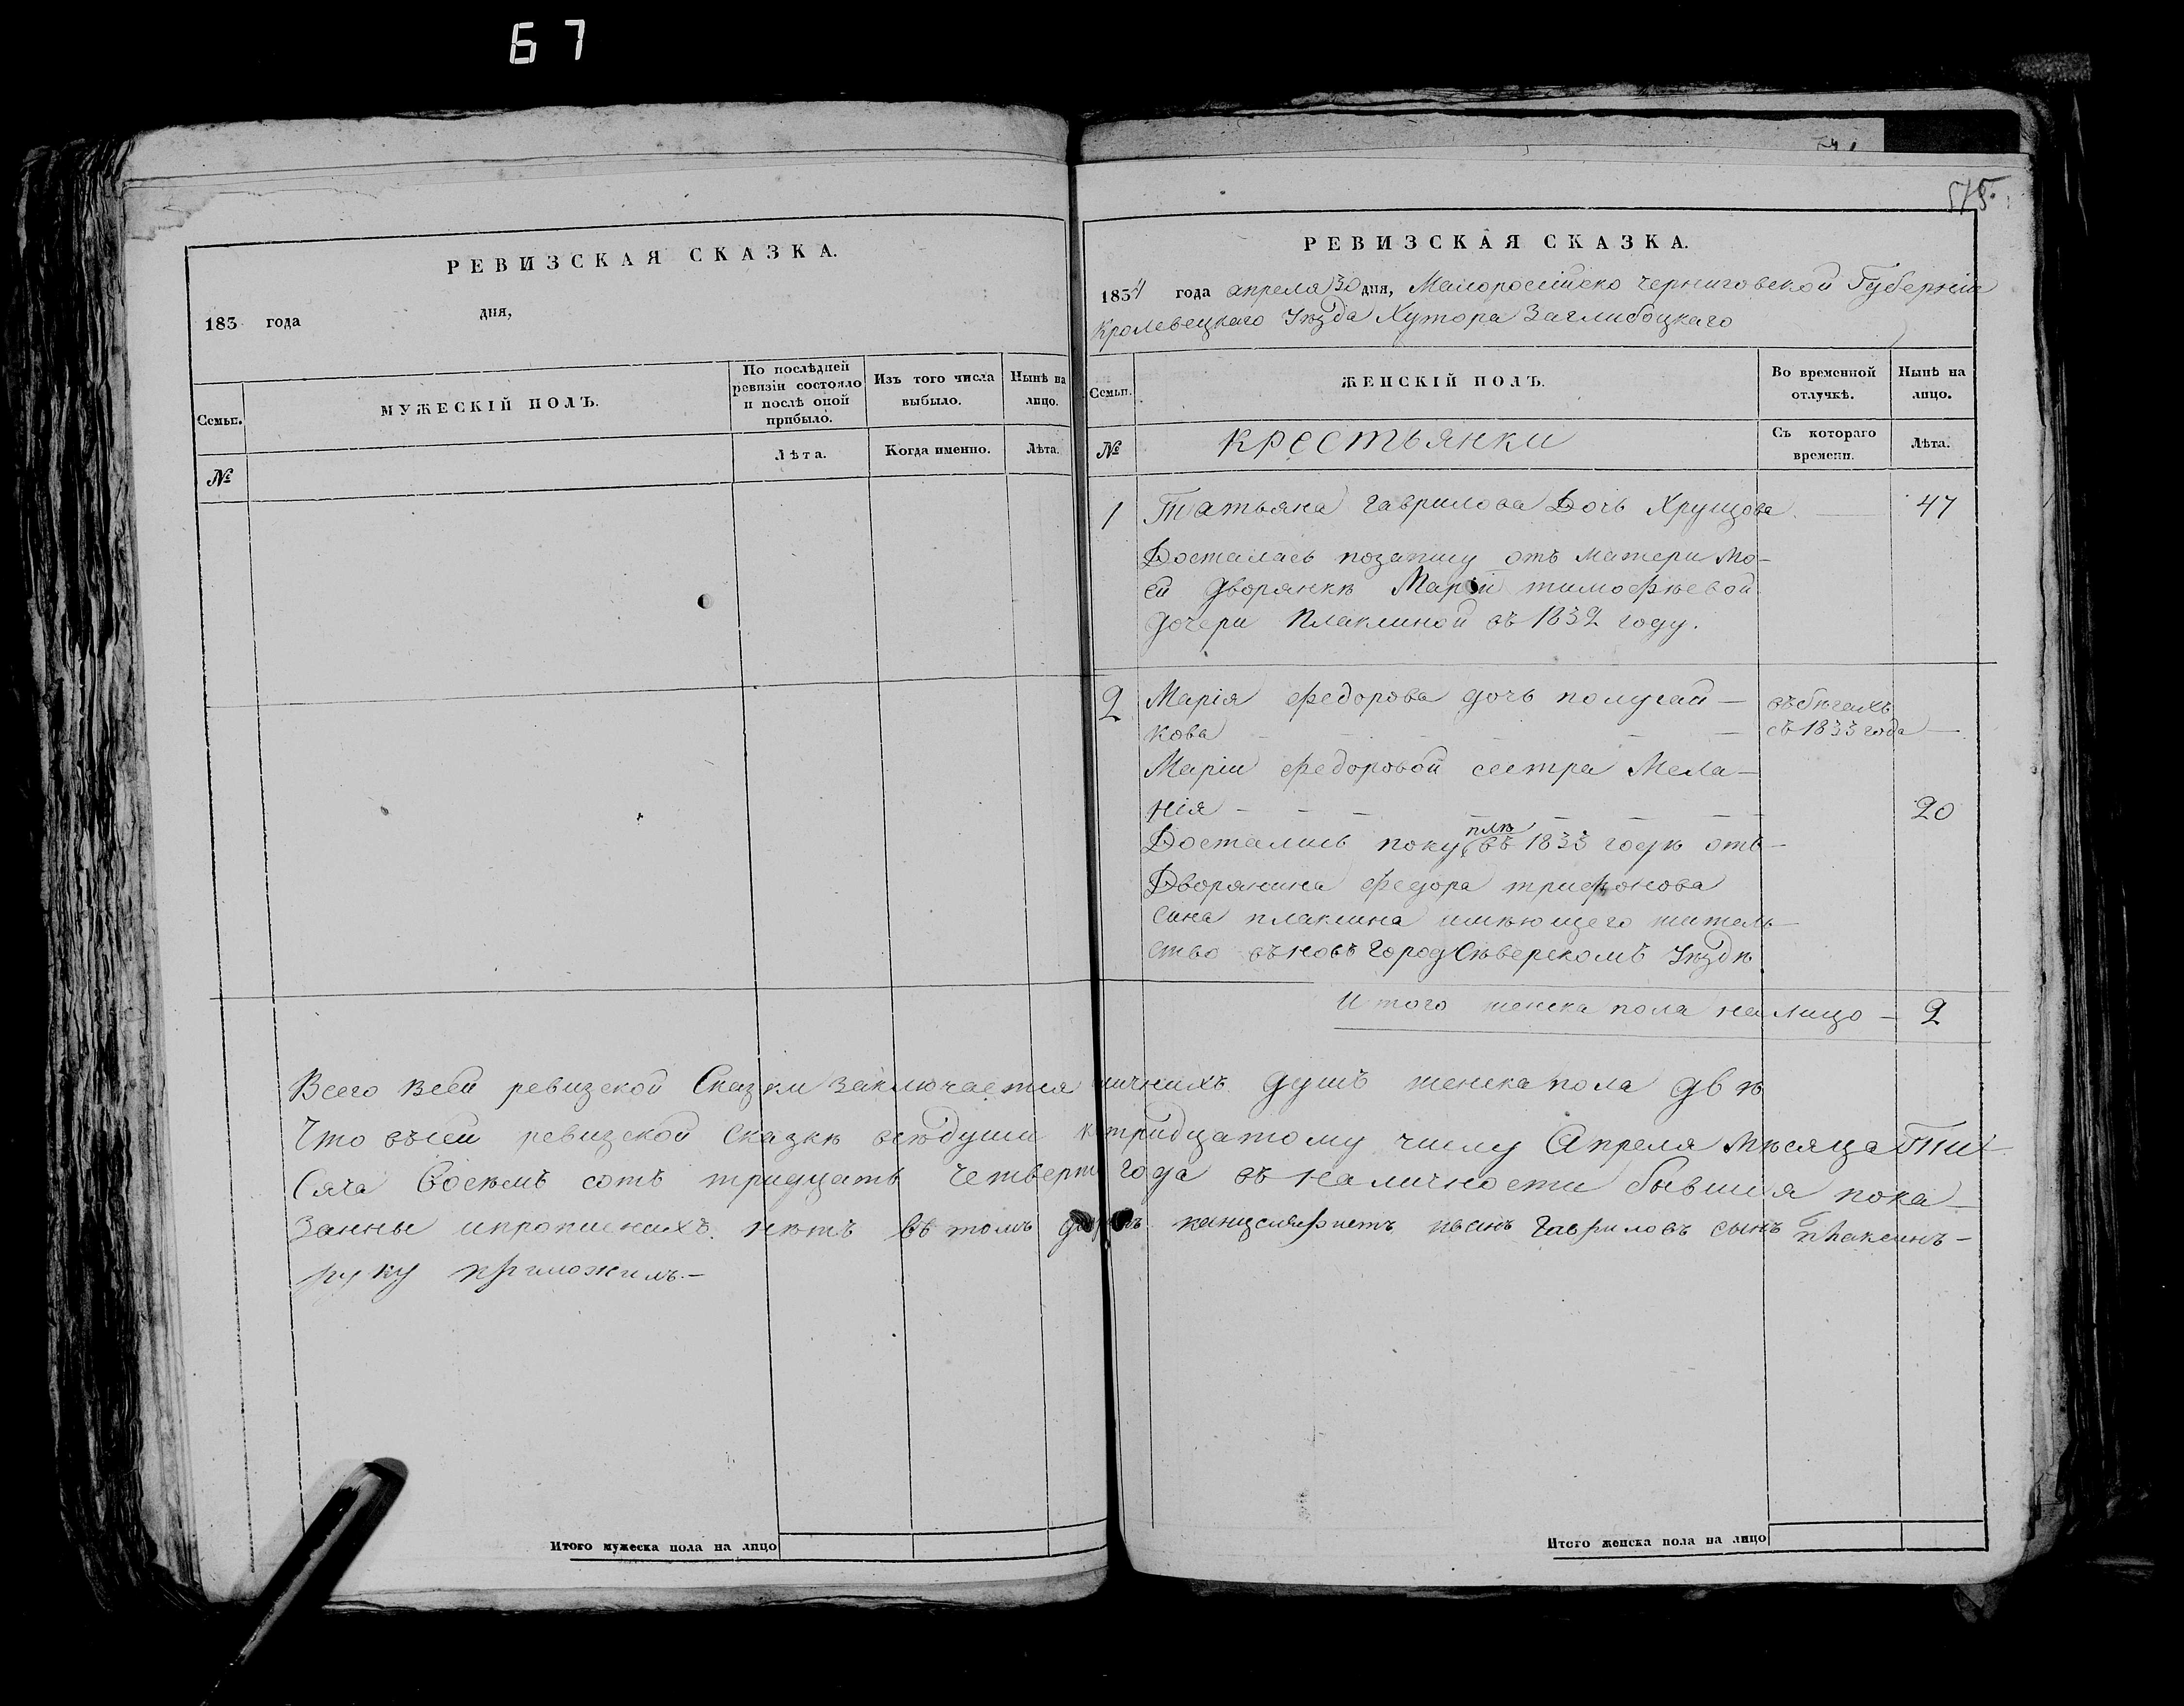 67
741
575
РЕВИЗСКАЯ СКАЗКА.
183 года дня,
Семьи.
МУЖЕСКІЙ ПОЛЪ.
По послѣдней ревизіи состояло и послѣ оной прибыло.
Изъ того числа выбыло.
Нынѣ на лицо.
№
Лѣта.
Когда именно.
Лѣта.
РЕВИЗСКАЯ СКАЗКА.
1834 года апреля 30 дня, Малоросійско черниговской Губерніи
Кролевецкаго Уѣзда Хутора Заглибоцкаго
Семьи.
ЖЕНСКІЙ ПОЛЪ.
Во временной отлучкѣ.
Нынѣ на лицо.
№
крестьянки
Съ котораго времени.
Лѣта.
1 Татьяна гаврилова Дочь Хрущова — 47
Досталась позапису отъ матери мо-
ей дворянки Маріи тимофѣевой
дочери Плаксиной въ 1832 году.
2 Марія федорова дочь полугай — въбѣгахъ
кова — съ 1833 года —
Маріи федоровой сестра Мела-
нія — 20
Достались поку плѣ въ 1833 годѣ отъ —
Дворянина федора трифонова
сина плаксина имѣющего житель-
ство въновъ Город Сѣверскомъ Уѣздѣ
Итого женска пола налицо — 2
Всего всей ревизской Сказки заключается личнихъ душъ женска пола двѣ
Что всей ревизской сказкѣ всѣдуши к тридцатому числу Апреля мѣсяца Тии-
Сяча Восѣмъ сотъ тридцать четверт года въ наличности бывшия пока-
занны ипрописнихъ нѣтъ въ томъ канцеляристъ иванъ Гавриловъ сынъ плаксинъ —
руку приложилъ. —
Итого мужеска пола на лицо
Итого женска пола на лицо